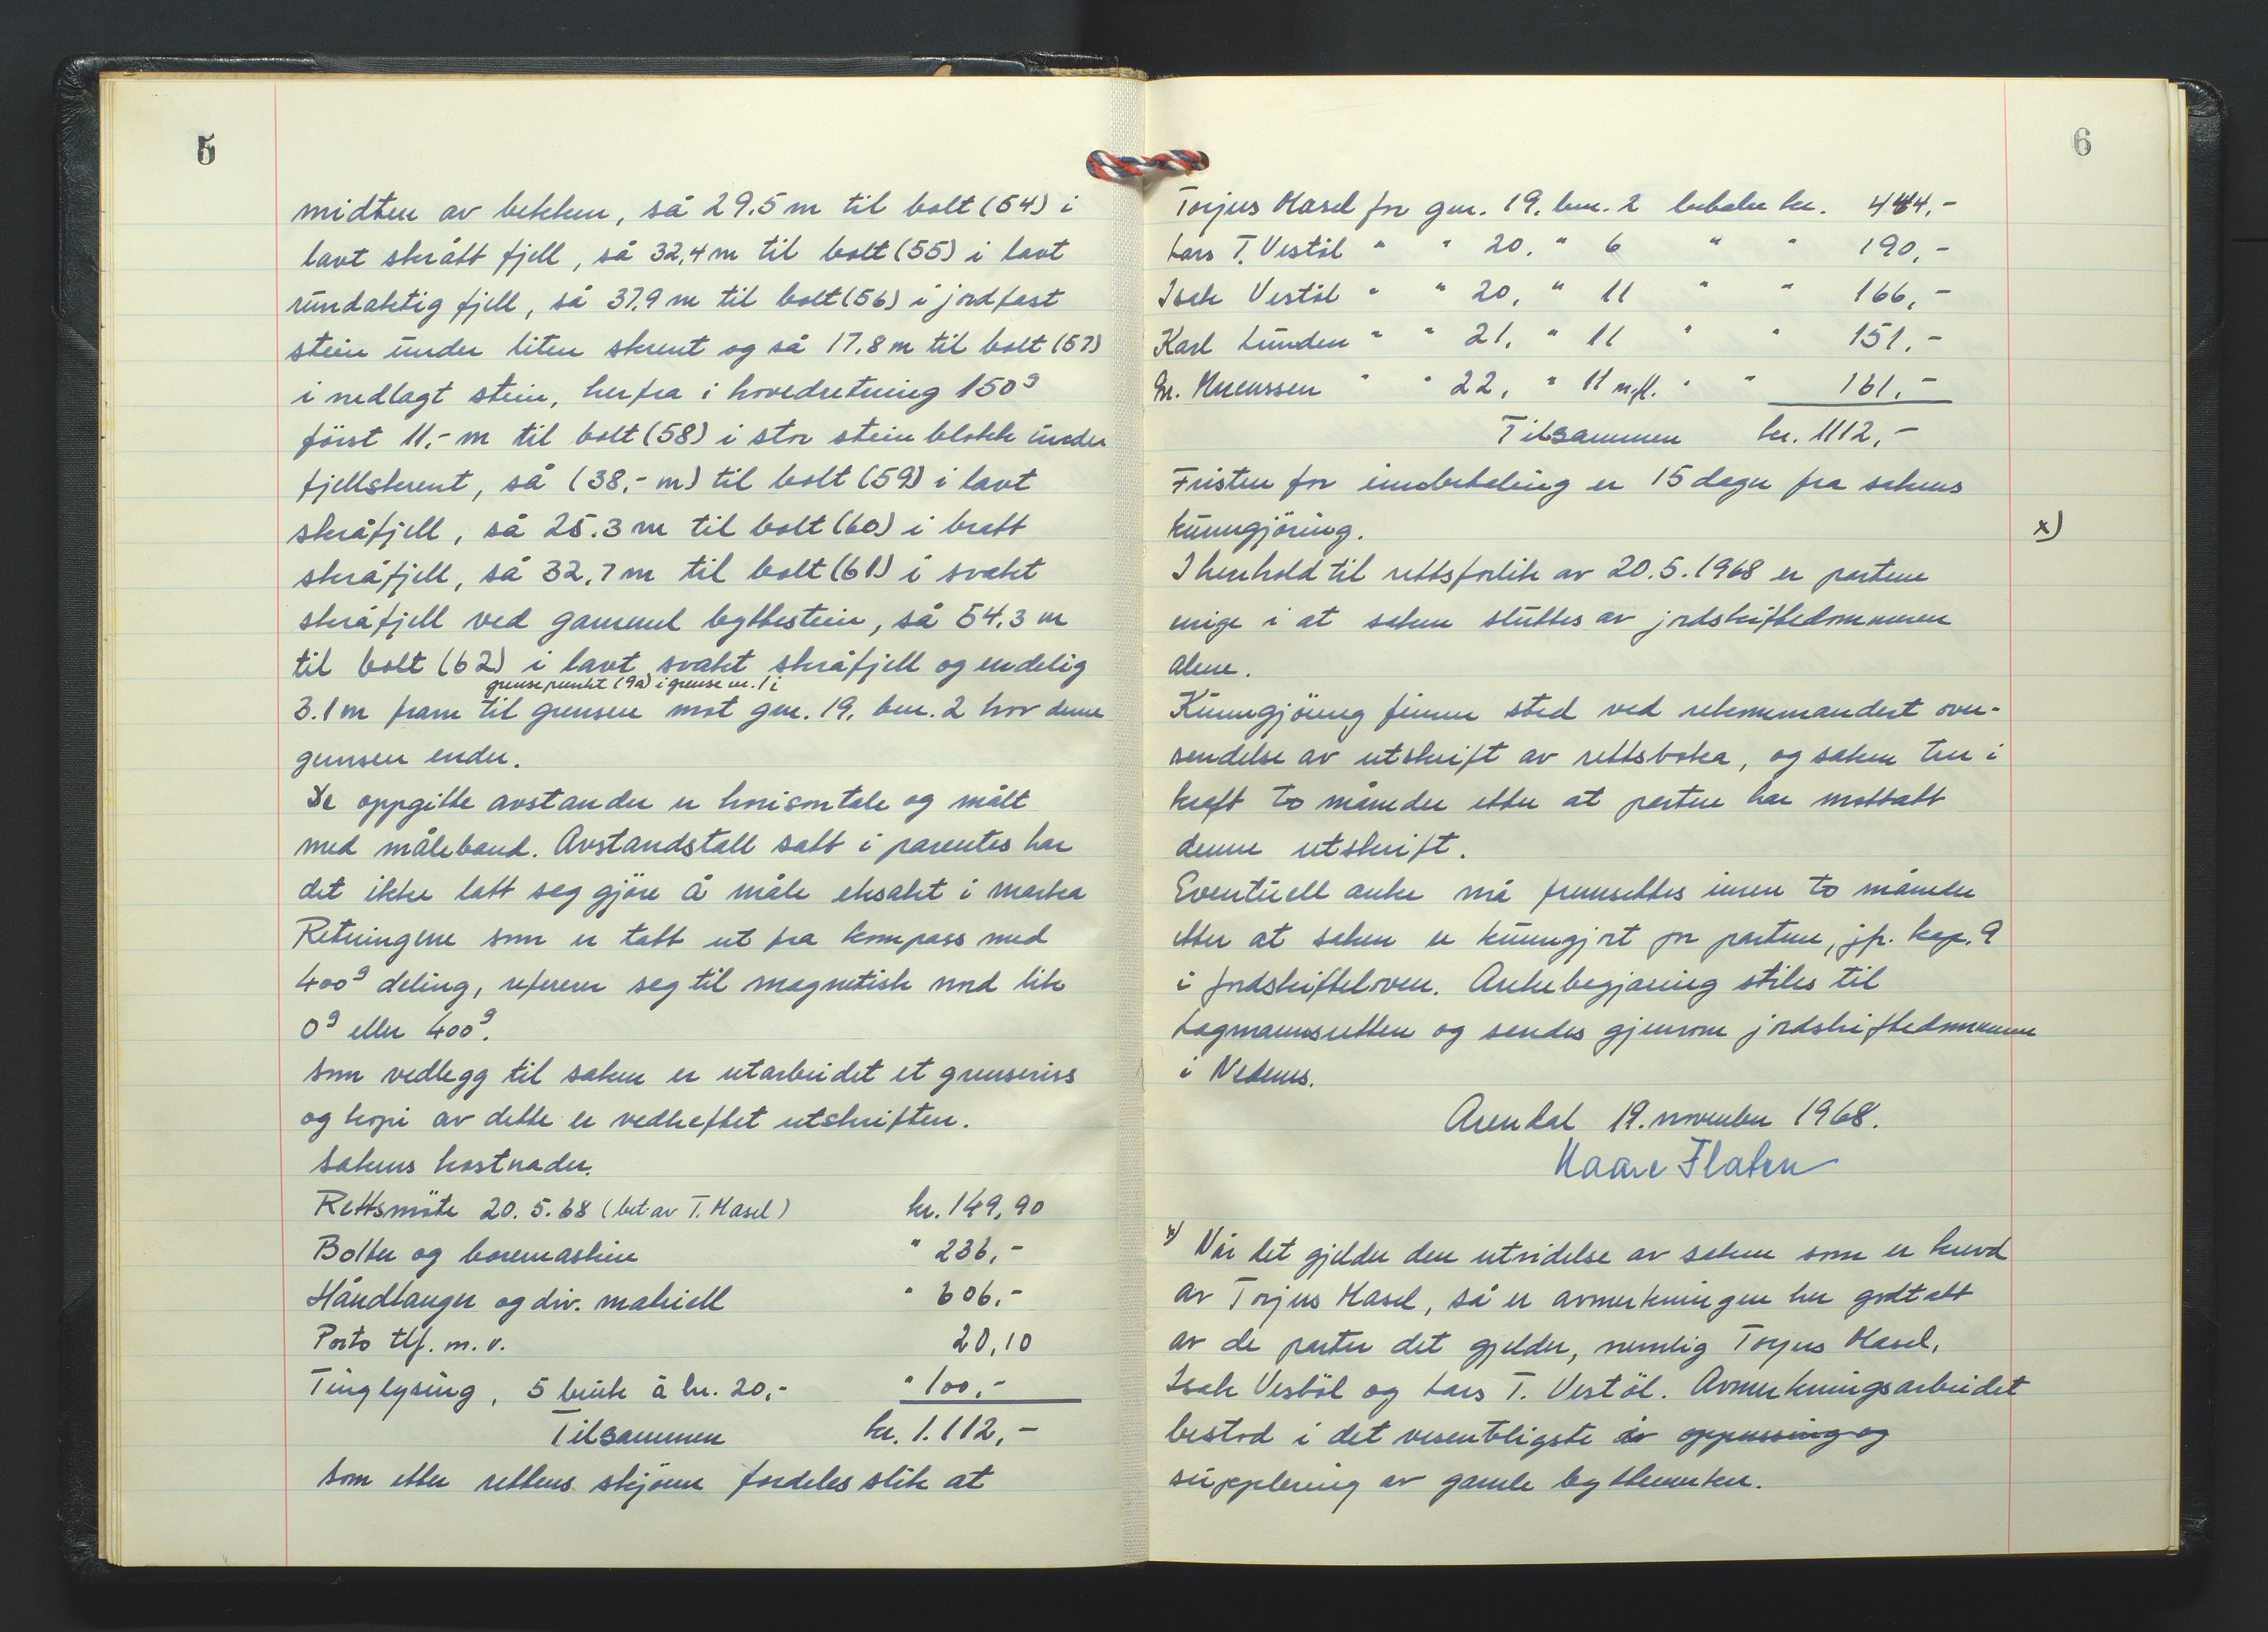 5
midten av bekken, så 29.5 m til bolt (54) i
lavt skrått fjell, så 32,4 m til bolt (55) i lavt
rundaktig fjell, så 37.9 m til bolt (56) i jordfast
stein under liten skrent og så 17.8 m til bolt (57)
i nedlagt stein, herfra i hovedretning 150g
først 11,- m til bolt (58) i stor stein blokk under
fjellskrent, så (38,- m) til bolt (59) i lavt
skråfjell, så 25.3 m til bolt (60) i bratt
skråfjell, så 32,7 m til bolt (61) i svakt
skråfjell ved gammel byttestein, så 54.3 m
til bolt (62) i lavt svakt skråfjell og endelig
grensepunkt (9a) i grense nr. 1 i
3.1 m fram til grensen mot gnr. 19, bnr. 2 hvor denne
grensen ender.
De oppgitte avstander er horisontale og målt
med måleband. Avstandstall satt i parentes har
det ikke latt seg gjöre å måle eksakt i marka
Retningene som er tatt ut fra kompass med
400g deling, referer seg til magnetisk nord lik
0g eller 400g.
Som vedlegg til saken er utarbeidet et grenseriss
og kopi av dette er vedheftet utskriften.
Sakens kostnader.
Rettsmöte 20. 5. 68 (bet. av T. Masel) kr. 149,90
Bolter og boremaskin " 236,-
Håndlanger og div. matriell " 606,-
Porto tlf. m. v. 20,10
Tinglysing, 5 bruk à kr. 20,- " 100,-
Tilsammen kr. 1.112,-
som etter rettens skjönn fordeles slik at
6
Torjus Masel for gnr. 19, bnr. 2 betaler kr. 444,-
Lars T. Vestöl " " 20, " 6 " " 190,-
Isak Vestöl " " 20, " 11 " " 166,-
Karl Lunden " " 21, " 11 " " 151,-
" " 22, " 11 m.fl. " " 161,-
Tilsammen kr. 1112,-
Fristen for innbetaling er 15 dager fra sakens
kunngjöring. x)
I henhold til rettsforlik av 20.5.1968 er partene
enige i at saken sluttes av jordskiftedommeren
alene.
Kunngjöring finner sted ved rekommandert over-
sendelse av utskrift av rettsboka, og saken trer i
kraft to måneder etter at parten har mottatt
denne utskrift.
Eventuell anke må fremsettes innen to måneder
etter at saken er kunngjort for partene, jfr. kap. 9
i jordskifteloven. Ankebegjæring stiles til
Lagmannsretten og sendes gjennom jordskiftedommeren
i Nedenes.
Arendal 19. november 1968.
Kaare Flaten
x) Når det gjelder den utvidelse av saken som er krevd
av Torjus Masel, så er avmerkningen her godtatt
av de parter det gjelder, nemlig Torjus Masel,
Isak Vestöl og Lars T. Vestöl. Avmerkningsarbeidet
bestod i det vesentligste av oppussing og
supplering av gamle byttemerker.